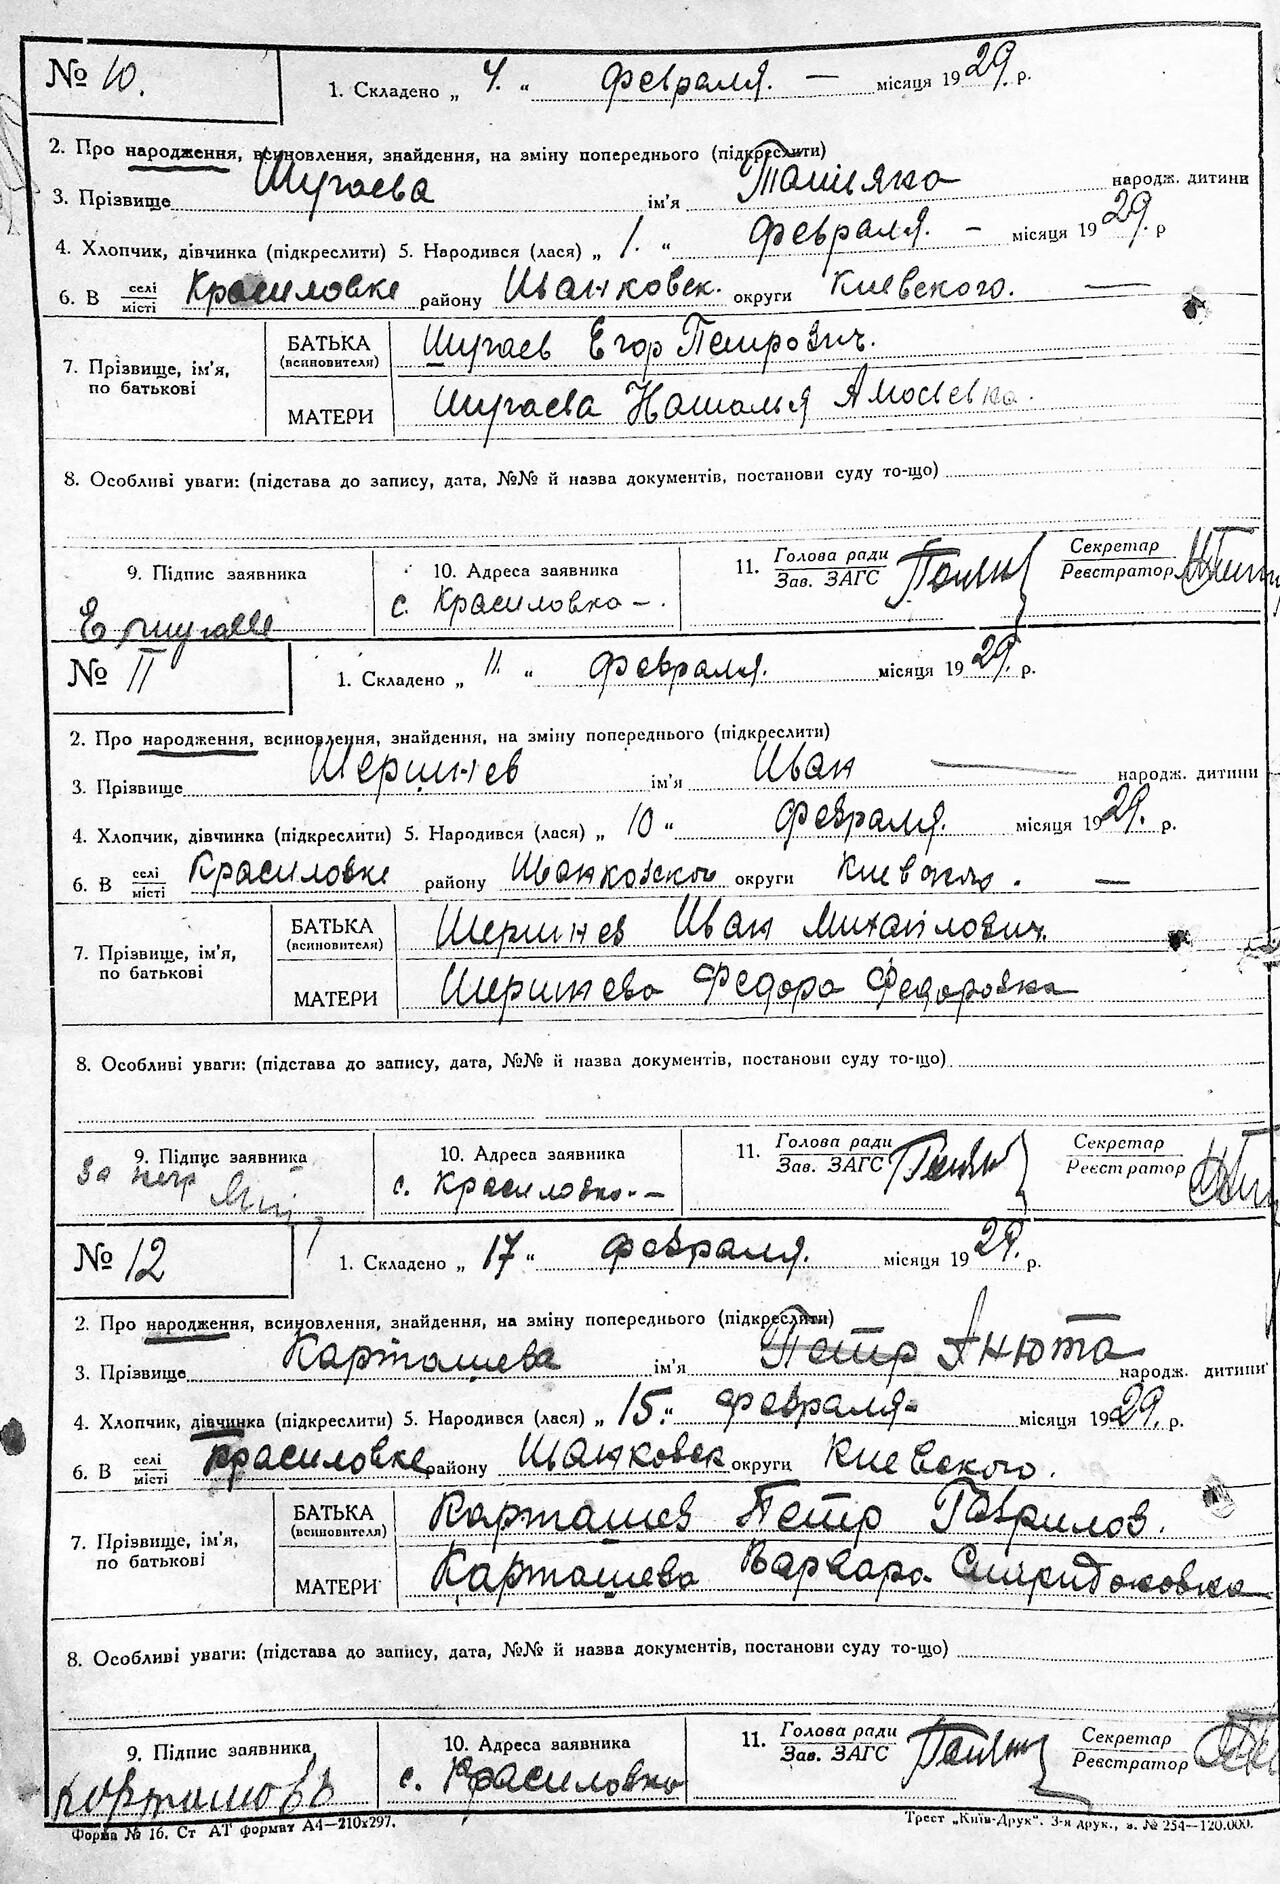 № 10.
1. Складено „ 4. “ февраля. — місяця 1929. р.
2. Про народження, всиновлення, знайдення, на зміну попереднього (підкреслити)
3. Прізвище Шугаева ім'я народж. дитини
4. Хлопчик, дівчинка (підкреслити) 5. Народився (лася) „ 1. “ февраля. – місяця 1929. р
6. В селі/місті Красиловке району Иванковск. округи Киевского. —
7. Прізвище, ім'я, по батькові
БАТЬКА (всиновителя) Шугаев Егор Петрович.
МАТЕРИ Шугаева Наталья Амосьевна.
8. Особливі уваги: (підстава до запису, дата, №№ й назва документів, постанови суду то-що)
9. Підпис заявника
10. Адреса заявника
с. Красиловка –.
11. Голова ради/Зав. ЗАГС
Секретар/Реєстратор
№ 11
1. Складено „ 11 “ февраля. місяця 1929. р.
2. Про народження, всиновлення, знайдення, на зміну попереднього (підкреслити)
3. Прізвище ім'я Иван — народж. дитини
4. Хлопчик, дівчинка (підкреслити) 5. Народився (лася) „ 10 “ февраля. місяця 1929. р.
6. В селі/місті Красиловке району Иванковского округи Киевского. —
7. Прізвище, ім'я, по батькові
БАТЬКА (всиновителя) Иван Михайлович.
МАТЕРИ Федора Федоровна
8. Особливі уваги: (підстава до запису, дата, №№ й назва документів, постанови суду то-що)
9. Підпис заявника
10. Адреса заявника
с. Красиловка. –
11. Голова ради/Зав. ЗАГС
Секретар/Реєстратор
№ 12
1. Складено „ 17 “ февраля. місяця 1929. р.
2. Про народження, всиновлення, знайдення, на зміну попереднього (підкреслити)
3. Прізвище Карташева ім'я Петр Анюта народж. дитини
4. Хлопчик, дівчинка (підкреслити) 5. Народився (лася) „ 15. “ февраля – місяця 1929. р.
6. В селі/місті Красиловке району Иванковск округи Киевского.
7. Прізвище, ім'я, по батькові
БАТЬКА (всиновителя) Карташев Петр Гаврилов.
МАТЕРИ Карташева Варвара Спиридоновна
8. Особливі уваги: (підстава до запису, дата, №№ й назва документів, постанови суду то-що)
9. Підпис заявника
10. Адреса заявника
с. Красиловка
11. Голова ради/Зав. ЗАГС
Секретар/Реєстратор
Форма № 16. Ст АТ формат А4—210х297.
Трест „Київ-Друк“. 3-я друк., з. № 254—120.000.